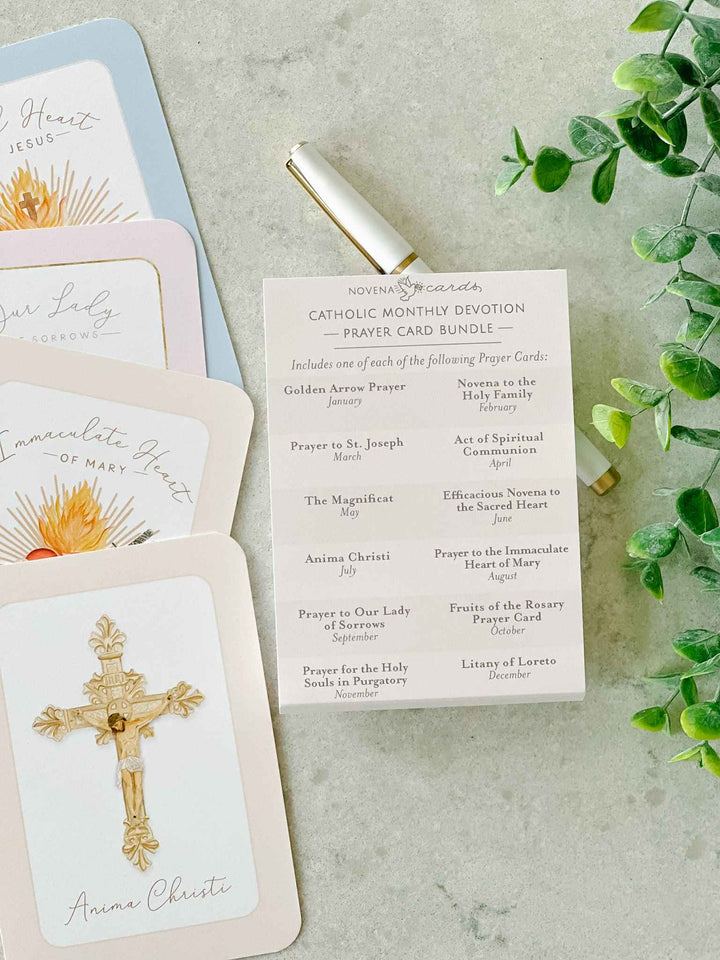 Heart
JESUS
Our Lady
SORROWS
Immaculate Heart
OF MARY
INRI
Anima Christi
NOVENA cards
CATHOLIC MONTHLY DEVOTION
PRAYER CARD BUNDLE
Includes one of each of the following Prayer Cards:
Golden Arrow Prayer
January
Novena to the
Holy Family
February
Prayer to St. Joseph
March
Act of Spiritual
Communion
April
The Magnificat
May
Efficacious Novena to
the Sacred Heart
June
Anima Christi
July
Prayer to the Immaculate
Heart of Mary
August
Prayer to Our Lady
of Sorrows
September
Fruits of the Rosary
Prayer Card
October
Prayer for the Holy
Souls in Purgatory
November
Litany of Loreto
December